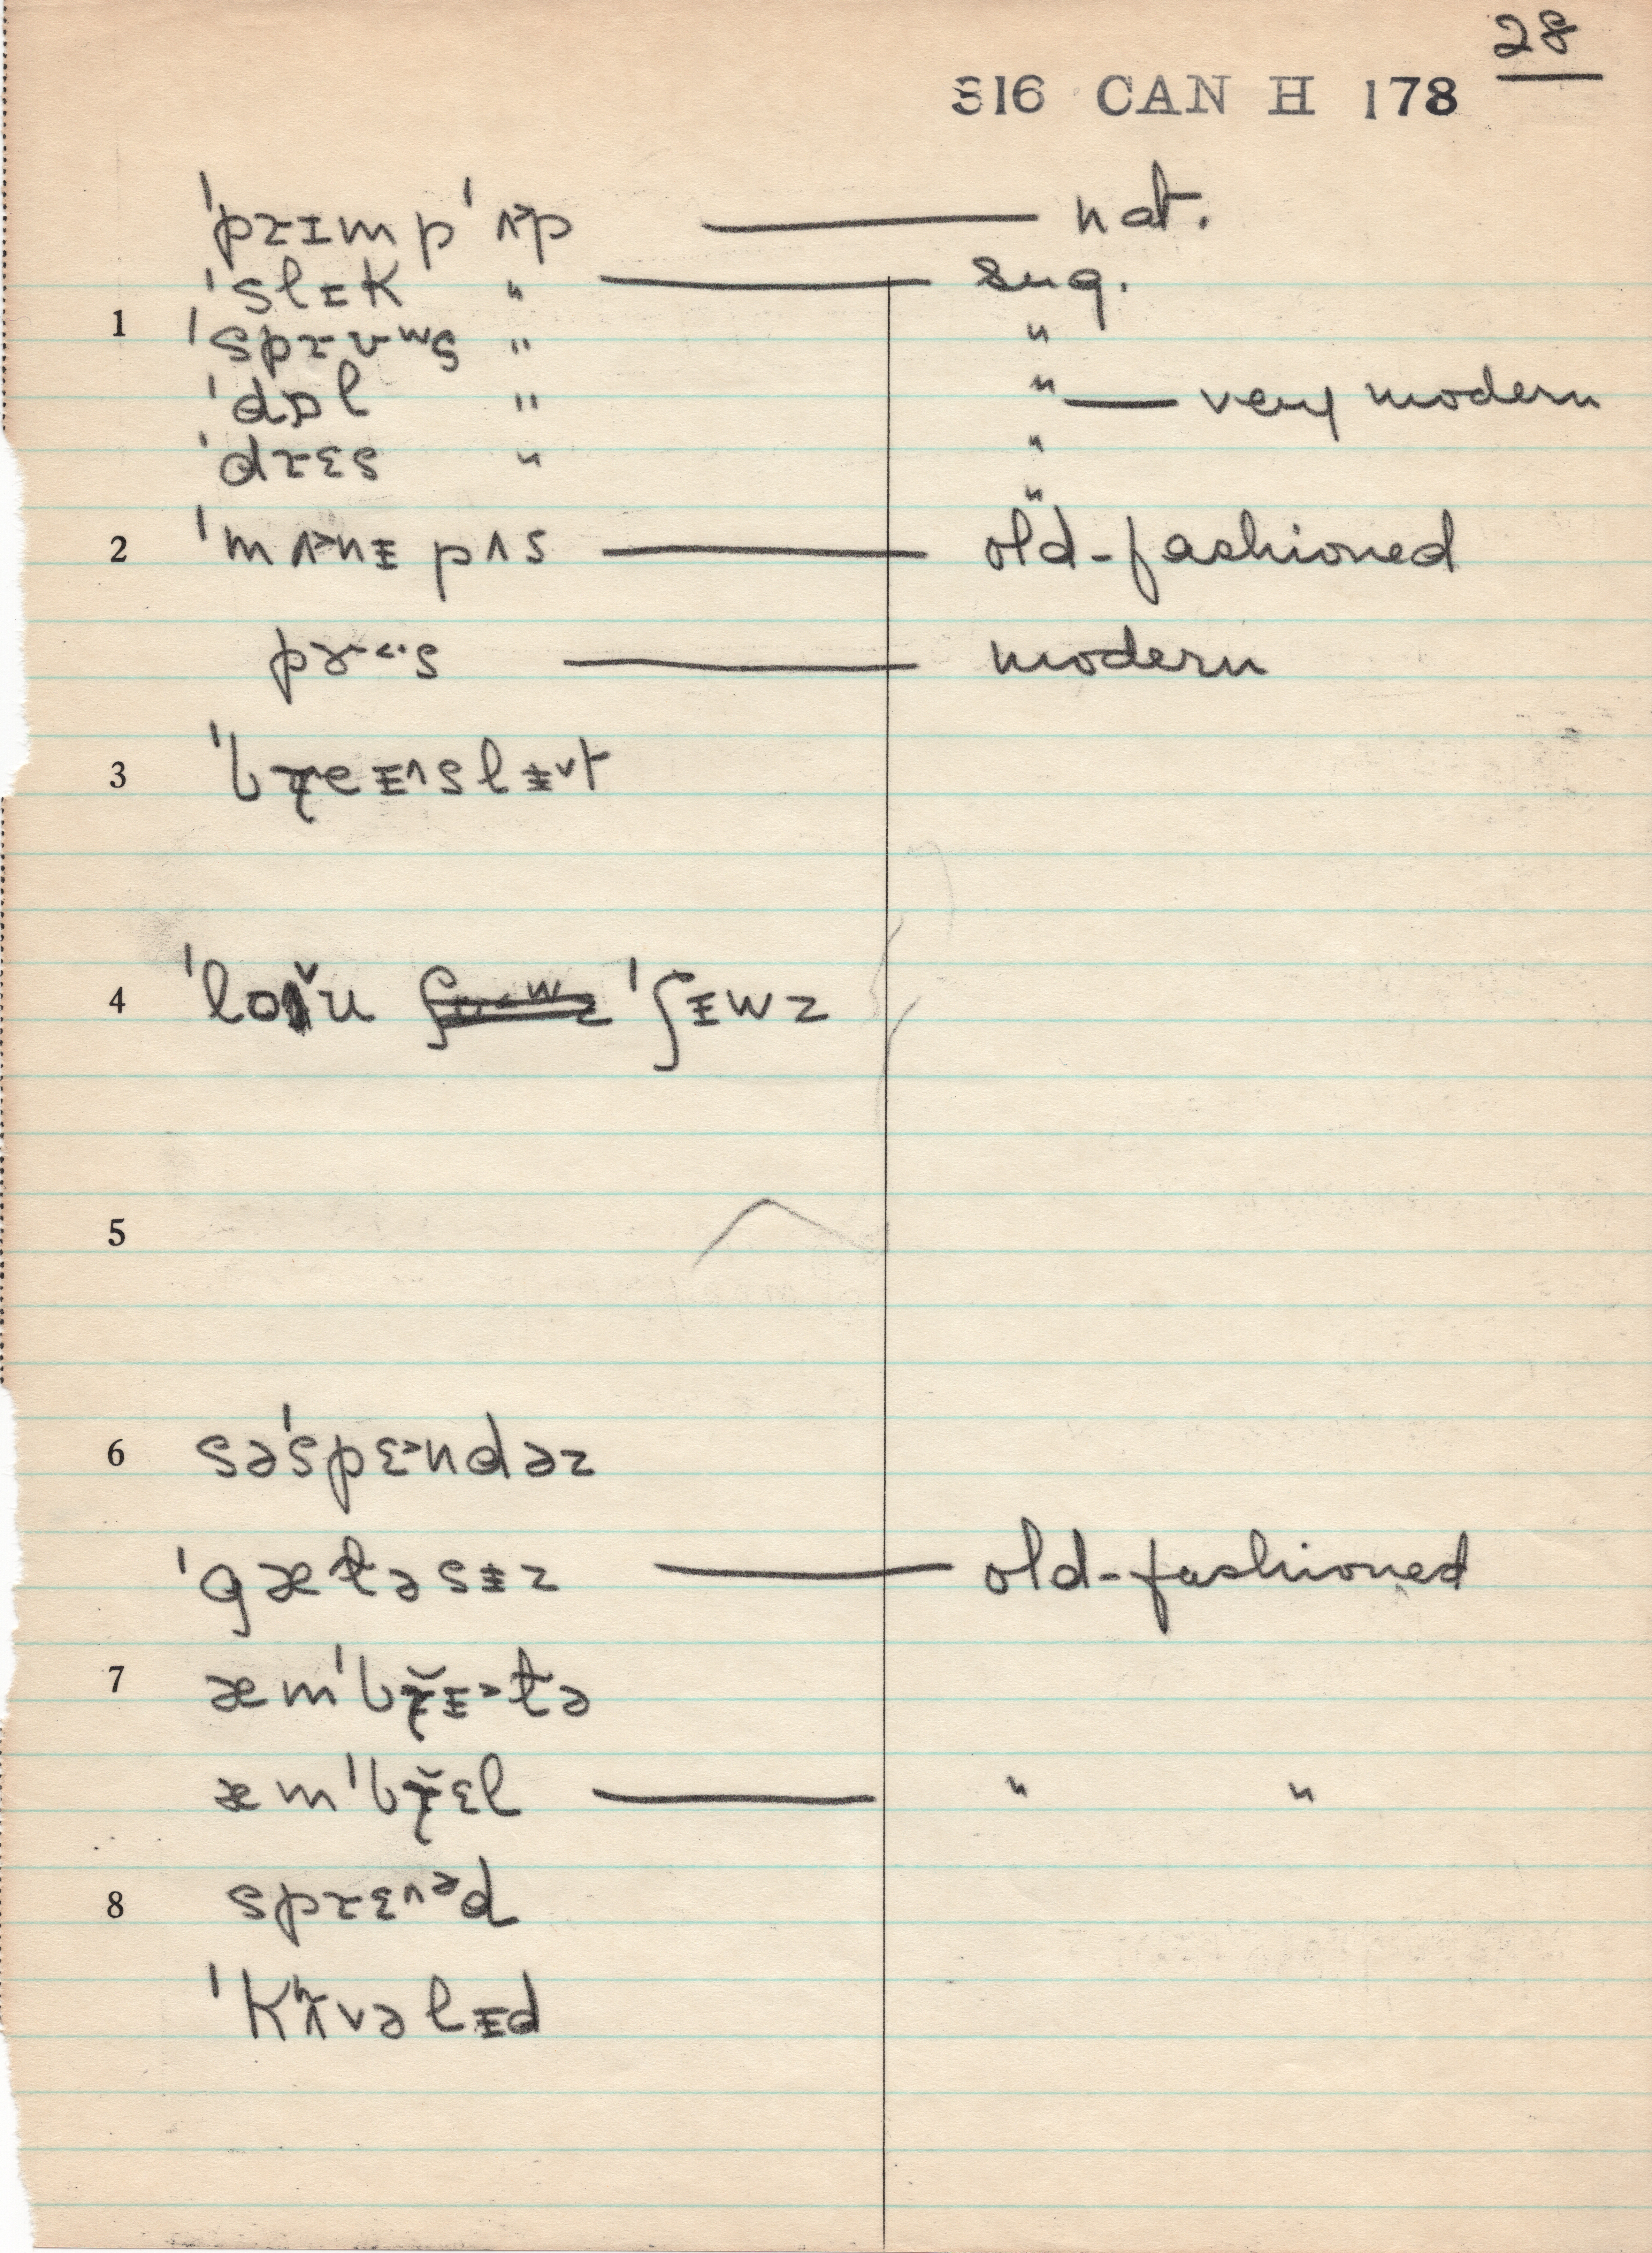 28
S16 CAN H 178
ˈprɪmpˈʌ˃p — nat.
ˈslɪk " — sug.
1 ˈsprʊʷs " "
ˈdɒl " " — very modern
ˈdrɛs " "
"
2 ˈmʌ˃nᵻ pʌs — old-fashioned
pɝ˂·s — modern
3 ˈbreᵻ^slᵻ˅t
4 ˈʃᵻwz
5
6 səˈspɛ˃ndəz
ˈgætəsᵻz — old-fashioned
7 æmˈbrᵻ˃tə
æmˈbrɛl — " "
8 sprɛ^ᵊd
ˈkʰʌvəlᵻd